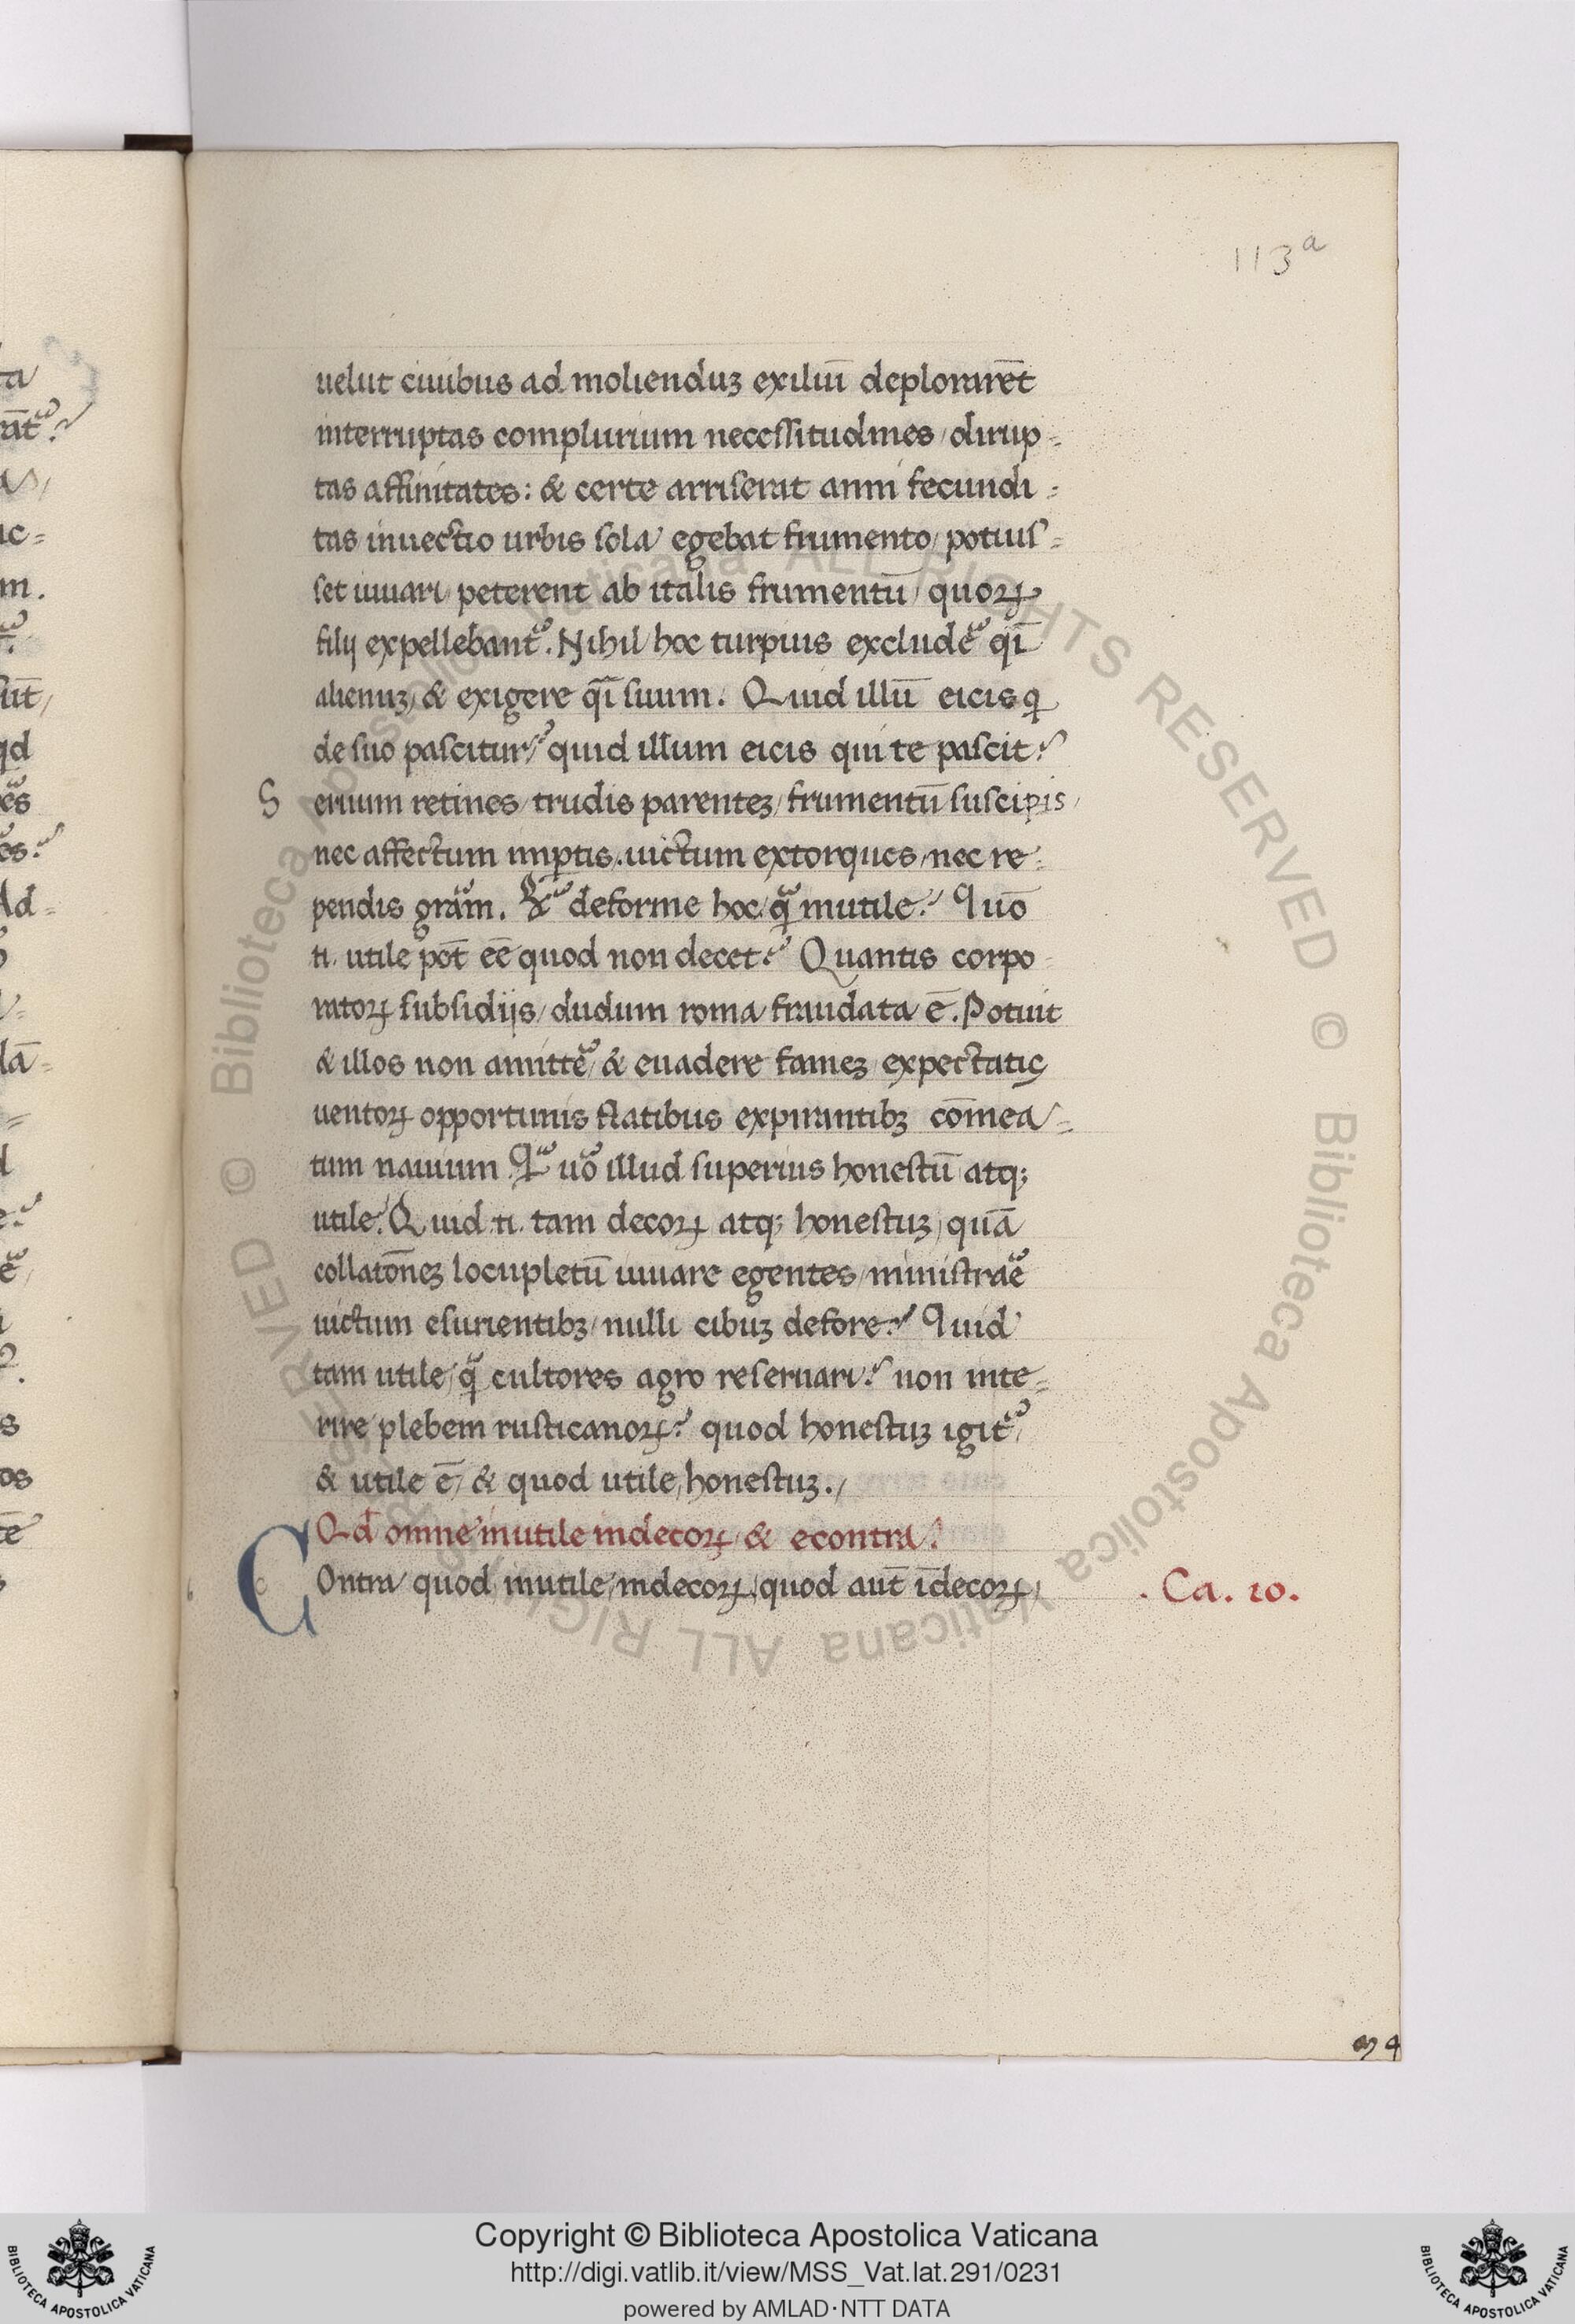 113ᵃ
uelut ciuibus ad molienduꝫ exiliū deplorarēt
interruptas complurium necessitudines / dirup=
tas affinitates: & certe arriserat anni fecundi=
tas inuectio urbis sola egebat frumento / potuis=
set iuuari / peterent ab italis frumentū / quoꝝ
filij expellebant᷑. Nihil hoc turpius exclude᷑ q̄i
alienuꝫ / & exigere q̄i suum. Quid illū eicis qi
de suo pascitur? quid illum eicis qui te pascit?
S eruum retines / trudis parenteꝫ / frumentū suscipis /
nec affectum imꝑtis. uictum extorques / nec re=
pendis gra᷑m. deforme hoc / q᷑ inutile? Quō
.n. utile pōt eē quod non decet? Quantis corpo=
ratoꝝ subsidijs / dudum roma fraudata ē. Potuit
& illos non amitte᷑ / & euadere fameꝫ expectatis
uentoꝝ opportunis flatibus expirantibꝫ cōmea=
tum nauium. uo᷑ illud superius honestū atq;
utile? Quid .n. tam decoꝝ atq; honestuꝫ / quā
collatōneꝫ locupletū iuuare egentes / ministra᷑e
uictum esurientibꝫ / nulli cibuꝫ defore? Quid
tam utile / q᷑ cultores agro reseruari? non inte=
rire plebem rusticanoꝝ? quod honestuꝫ igit᷑ /
& utile ē / & quod utile / honestuꝫ. /
Qd̄ omne inutile indecoꝝ / & econtra.
COntra quod inutile / indecoꝝ / quod aūt īdecoꝝ /
. Ca. 10.
Copyright © Biblioteca Apostolica Vaticana
http://digi.vatlib.it/view/MSS_Vat.lat.291/0231
powered by AMLAD·NTT DATA
BIBLIOTECA APOSTOLICA VATICANA
BIBLIOTECA APOSTOLICA VATICANA
© Biblioteca Apostolica Vaticana ALL RIGHTS RESERVED © Biblioteca Apostolica Vaticana ALL RIGHTS RESERVED